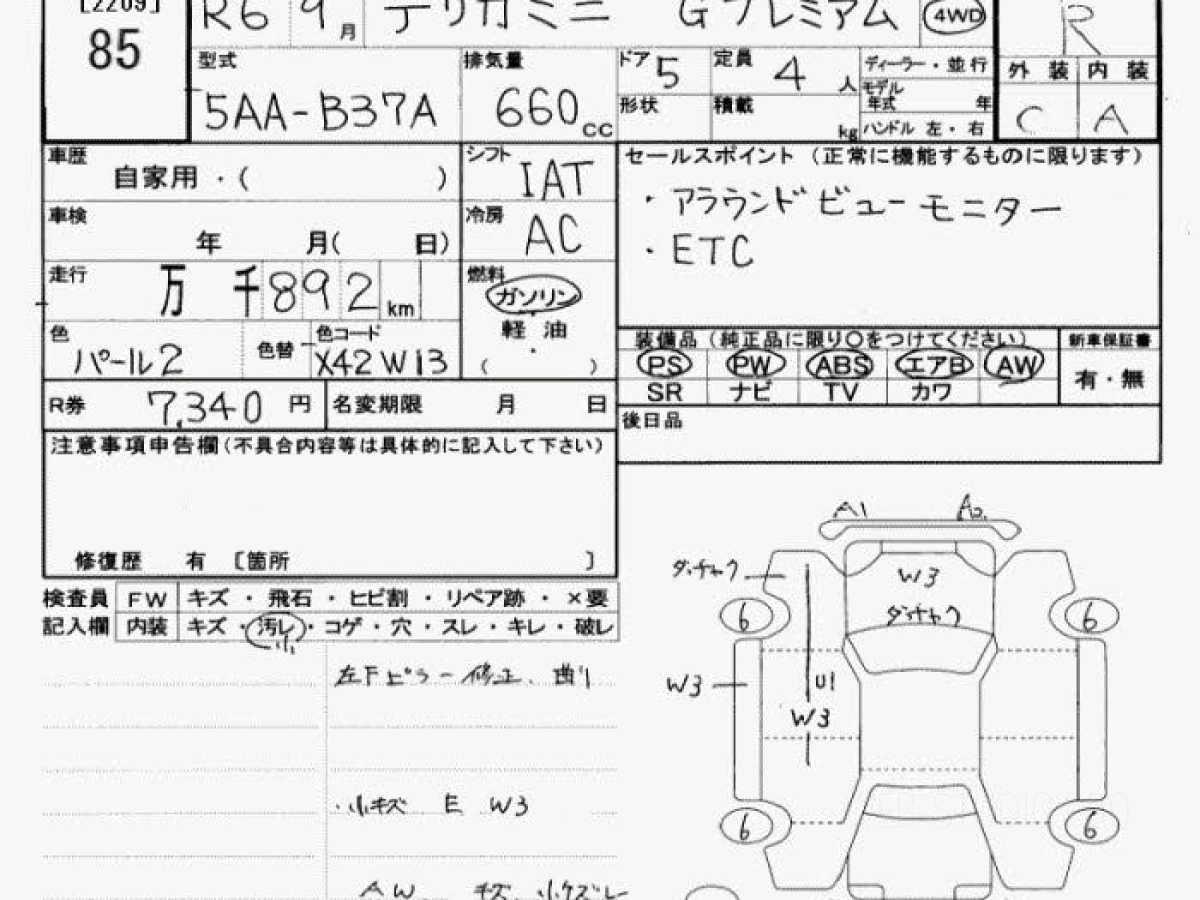 [2209]
85
R6 9月 デリカミニ Gプレミアム 4WD R
型式 5AA-B37A
排気量 660cc
ドア 5
定員 4人
形状
積載 kg
ディーラー・並行
モデル年式 年
ハンドル 左・右
外装 内装
C A
車歴 自家用・( )
シフト IAT
車検 年 月( 日)
冷房 AC
走行 万千892km
燃料 ガソリン
軽油
( )
色 パール2
色替
色コード X42 W13
R券 7,340円
名変期限 月 日
セールスポイント(正常に機能するものに限ります)
・アラウンドビューモニター
・ETC
装備品(純正品に限り〇をつけてください)
PS PW ABS エアB AW
SR ナビ TV カワ
新車保証書
有・無
後日品
注意事項申告欄(不具合内容等は具体的に記入して下さい)
修復歴 有 〔箇所 〕
検査員 FW キズ・飛石・ヒビ割・リペア跡・×要
記入欄 内装 キズ・汚レ・コゲ・穴・スレ・キレ・破レ
小
左Fピラー修正、曲り
・小キズ E W3
AW キズ 小ケズレ
A1 A2
ダッチャク W3
ダッチャク
6 6
W3 U1
W3
6 6